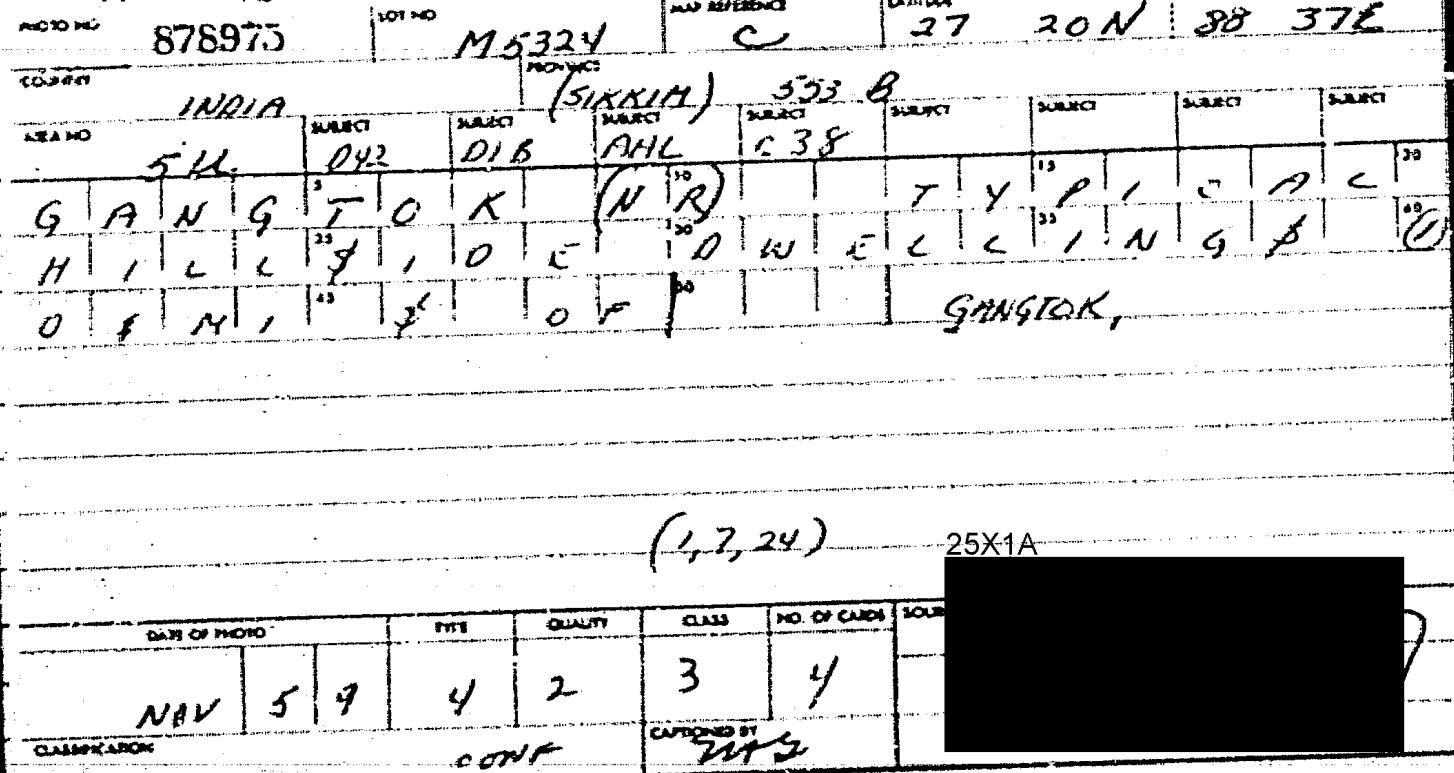 PHOTO NO 878975 LOT NO M5324 MAP REFERENCE C 27 20 N 88 37 E
COUNTRY INDIA PROVINCE (SIKKIM) 553 B
AREA NO 5U SUBJECT D42 SUBJECT D1B SUBJECT AHL SUBJECT C38 SUBJECT SUBJECT SUBJECT SUBJECT
GANGTOK (NR) TYPICAL
HILLSIDE DWELLINGS
OF GANGTOK,
(1,7,24)
25X1A
DATE OF PHOTO TYPE QUALITY CLASS NO. OF CARDS
NOV 59 4 2 3 4
CLASSIFICATION CONF CAPTIONED BY